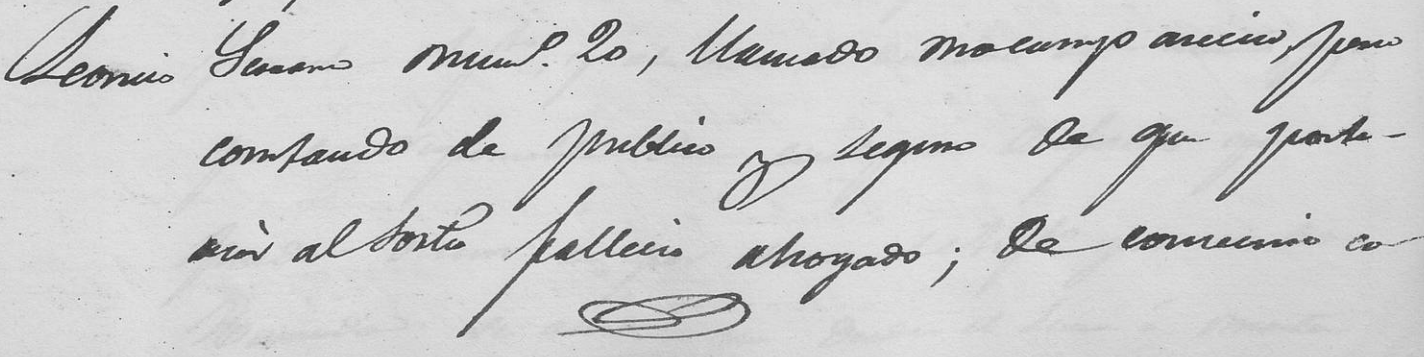 Leoncio Serrano num.º 20, llamado no comparecio, pero
constando de publico y seguro de que poste-
rior al sorteo fallecio ahogado; de comun